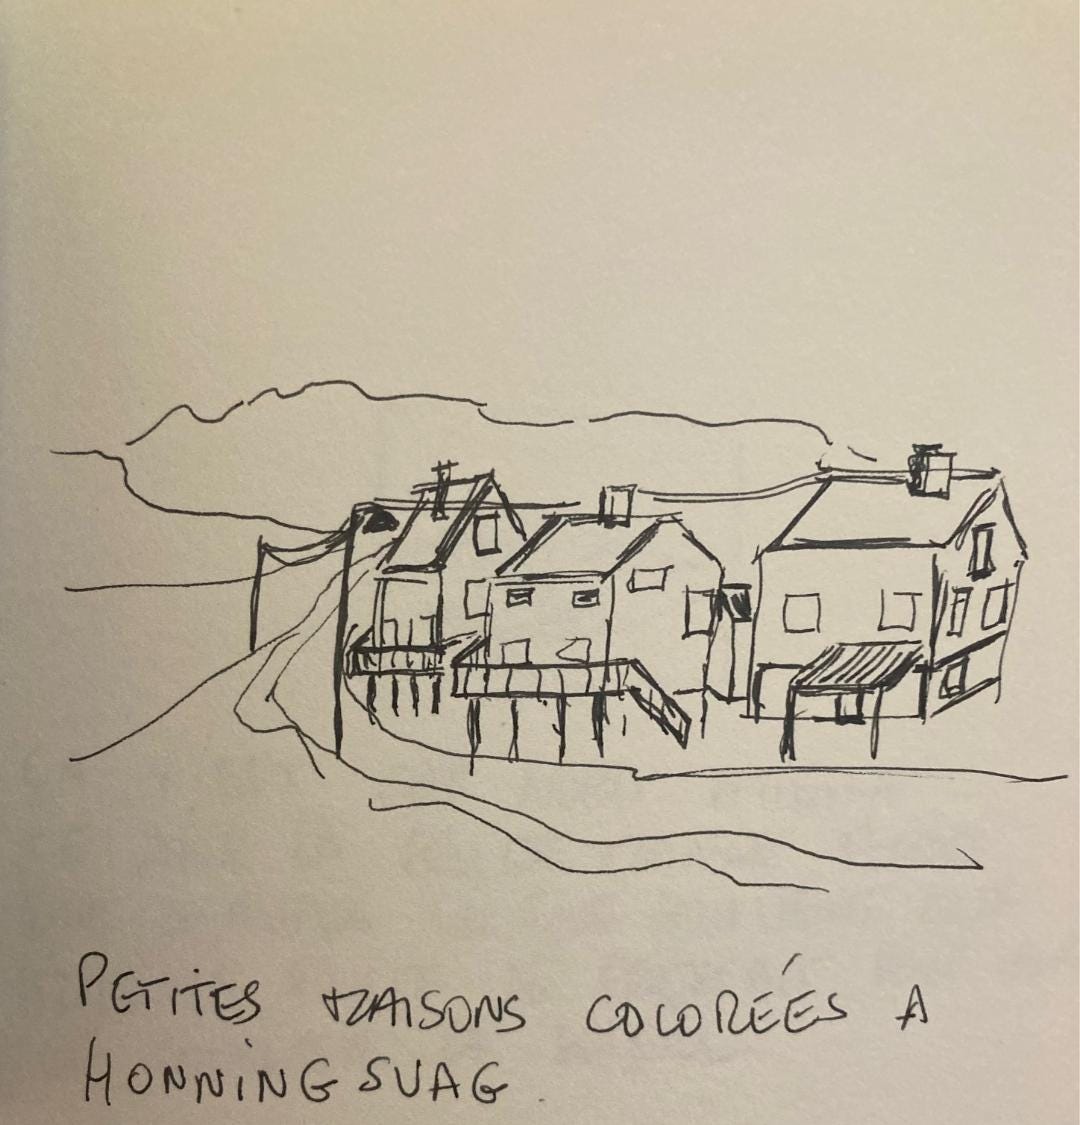 PETITES MAISONS COLORÉES A
HONNINGSVAG.